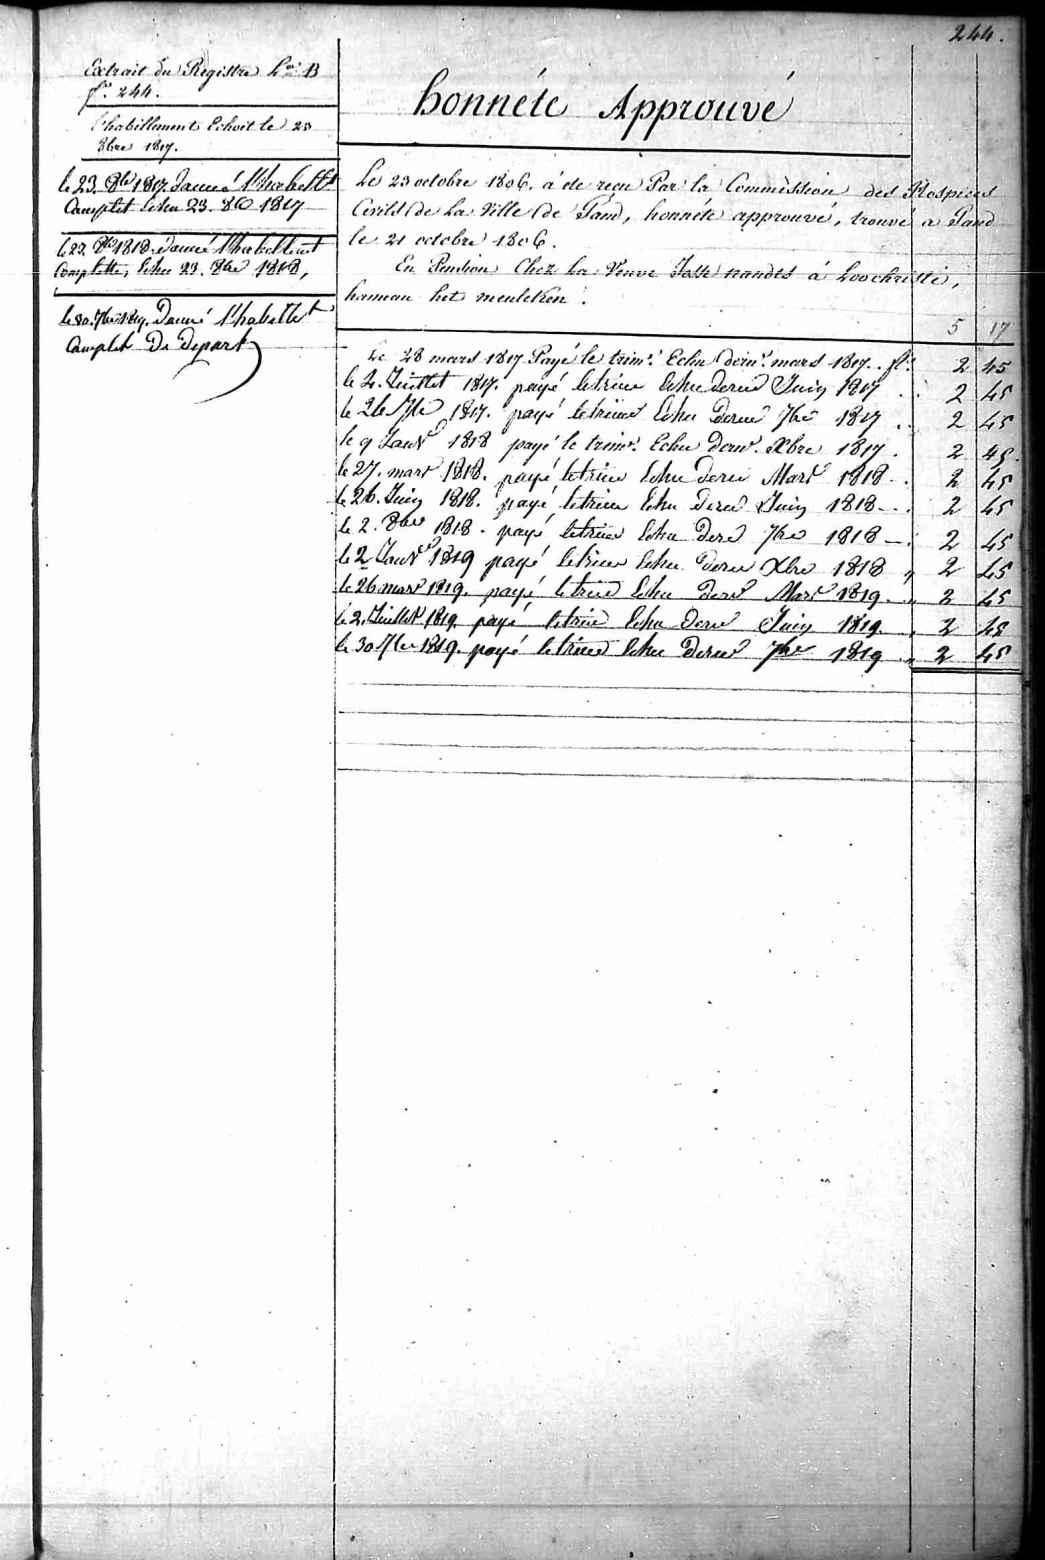 244.
Extrait du Registre L.ra B
f.o 244.
l'habillement Echoit le 23
8bre 1817.
le 23. 8bre 1817 Donné l'habillt
Complet Echu 23. 8bre 1817
le 23. 8bre 1818. donné l'habillent
Complette, Echu 23. 8bre 1818,
le 30. 7bre 1819. Donné l'habillet
Complet De Départ
honnéte Approuvé
Le 23 octobre 1806. á éte reçu Par la Commission des Hospices
Civils de La Ville de Gand, honnéte approuvé, trouvé a Gand
le 21 octobre 1806.
En Pension Chez La Veuve Josse nandts á Loochristi,
hameau het meuleken.
5 17
Le 28 mars 1817 Payé le trim.e Echu dern.r mars 1817. . fl. 2 45
le 2. Juillet 1817. payé letrime Echu derne Juin 1817 . . 2 45
le 26 7bre 1817. payé letrime Echu derne 7bre 1817 . . 2 45
le 9 Janvr 1818 payé le trim.e Echu dern.r Xbre 1817 . 2 45.
le 27. mars 1818. payé letrime Echu derne Mars 1818 . . 2 45
le 26. Juin 1818. payé letrime Echu derne Juin 1818 . . 2 45
le 2. 8bre 1818 - payé letrime Echu derne 7bre 1818 - . 2 45
le 2 Janvr 1819 payé letrime Echu derne Xbre 1818 „ 2 45
le 26 mars 1819. payé letrime Echu derne Mars 1819 . „ 2 45
le 2. Juillet 1819. payé letrime Echu derne Juin 1819. „ 2 45
le 30 7bre 1819. payé letrime Echu derne 7bre 1819 „ 2 45